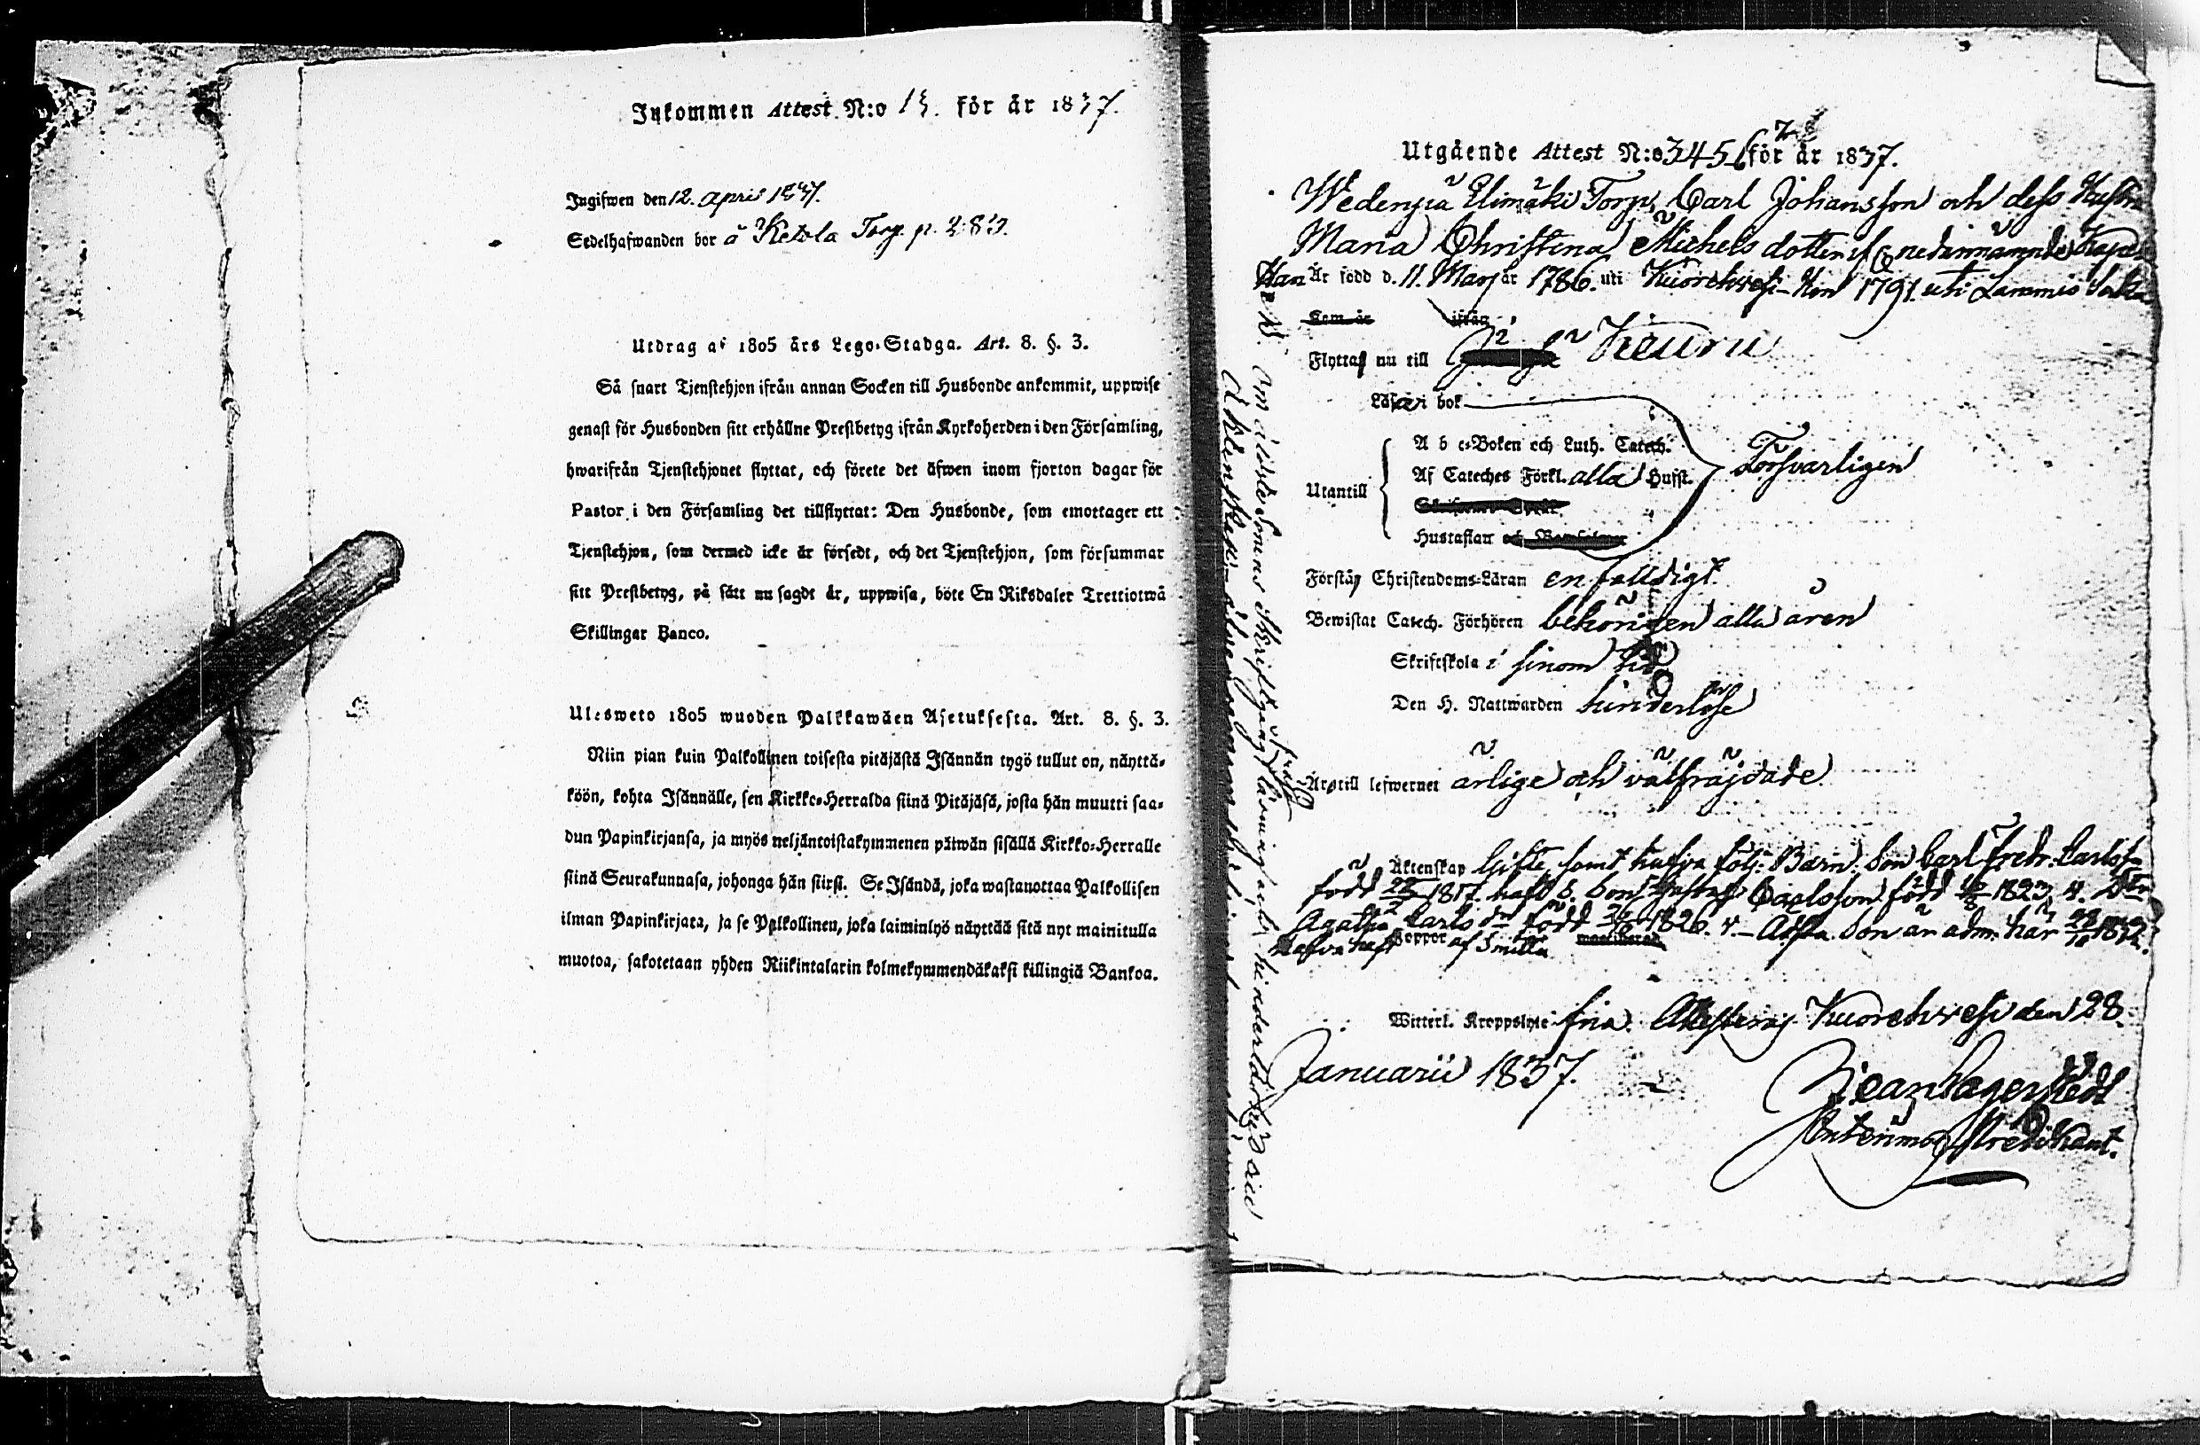 Inkommen Attest N:o 13. för år 1837.
Ingifwen den 12. April 1837.
Sedelhafwanden bor å Ketola Torp p. 283.
Utdrag af 1805 års Lego-Stadga. Art. 8. §. 3.
Så snart Tjenstehjon ifrån annan Socken till Husbonde ankommit, uppwise
genast för Husbonden sitt erhållne Prestbetyg ifrån Kyrkoherden i den Församling,
hwarifrån Tjenstehjonet flyttat, och förete det äfwen inom fjorton dagar för
Pastor i den Församling det tillflyttat: Den Husbonde, som emottager ett
Tjenstehjon, som dermed icke är försedt, och det Tjenstehjon, som försummar
sitt Prestbetyg, på sätt nu sagdt är, uppwisa, böte En Riksdaler Trettiotwå
Skillingar Banco.
Ulesweto 1805 wuoden Palkkawäen Asetuksesta. Art. 8. §. 3.
Niin pian kuin Palkollinen toisesta pitäjästä Isännän tygö tullut on, näyttä-
köön, kohta Isännälle, sen Kirkko-Herralda siinä Pitäjäsä, josta hän muutti saa-
dun Papinkirjansa, ja myös neljäntoistakymmenen päiwän sisällä Kirkko-Herralle
siinä Seurakunnasa, johonga hän siirsi. Se Isändä, joka wastanottaa Palkollisen
ilman Papinkirjata, ja se Palkollinen, joka laiminlyö näyttää sitä nyt mainitulla
muotoa, sakotetaan yhden Riikintalarin kolmekymmendäkaksi killingiä Bankoa.
Utgående Attest N:o 3 4 5 6 7 för år 1837.
Wedenpiä Elimäki Torp. Carl Johansson och dess Hustru
Maria Christina Michels dotter nedannämnde
Han Är född d. 11. Mars år 1786. uti Kuorehvesi - Hon 1791. uti Lammis
Kom år ifrån
Flyttas nu till Keuru
Läsa i bok
A b c-Boken och Luth. Catech.
Utantill Af Cateches Förkl. alla Hufst. Försvarligen
Hustaflan och
Förstå Christendoms-Läran enfalldigt.
Bewistat Catech. Förhören behörigen alla åren
Skriftskola i sinom tid
Den H. Nattwarden hinderlöse
Äro till lefwernet ärlige och välfräjdade
Äktenskap Gifte, samt hafva följ. Barn: Son Carl Fredr. Carlss.
född 1817. Son Gustaf Carlsson född 1823, v. Dtr
Agatha Carls dr född 1826. v. - Äldsta Son är adm. här 1832.
Hafva haft Koppor af Smitta
Witterl. Kroppslyte fria. Attesteras Kuorehvesi den 28.
Januarii 1837.
Jean Lagerstedt
Predikant.